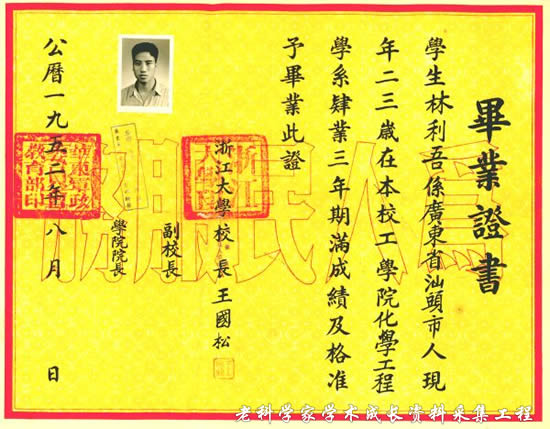 畢業證書
學生林利吾係廣東省汕頭市人現
年二三歲在本校工學院化學工程
學系肄業三年期滿成績及格准
予畢業此證
浙江大學校長王國松
副校長
學院院長
公曆一九五二年八月 日
爲人民服務
老科学家学术成长资料采集工程